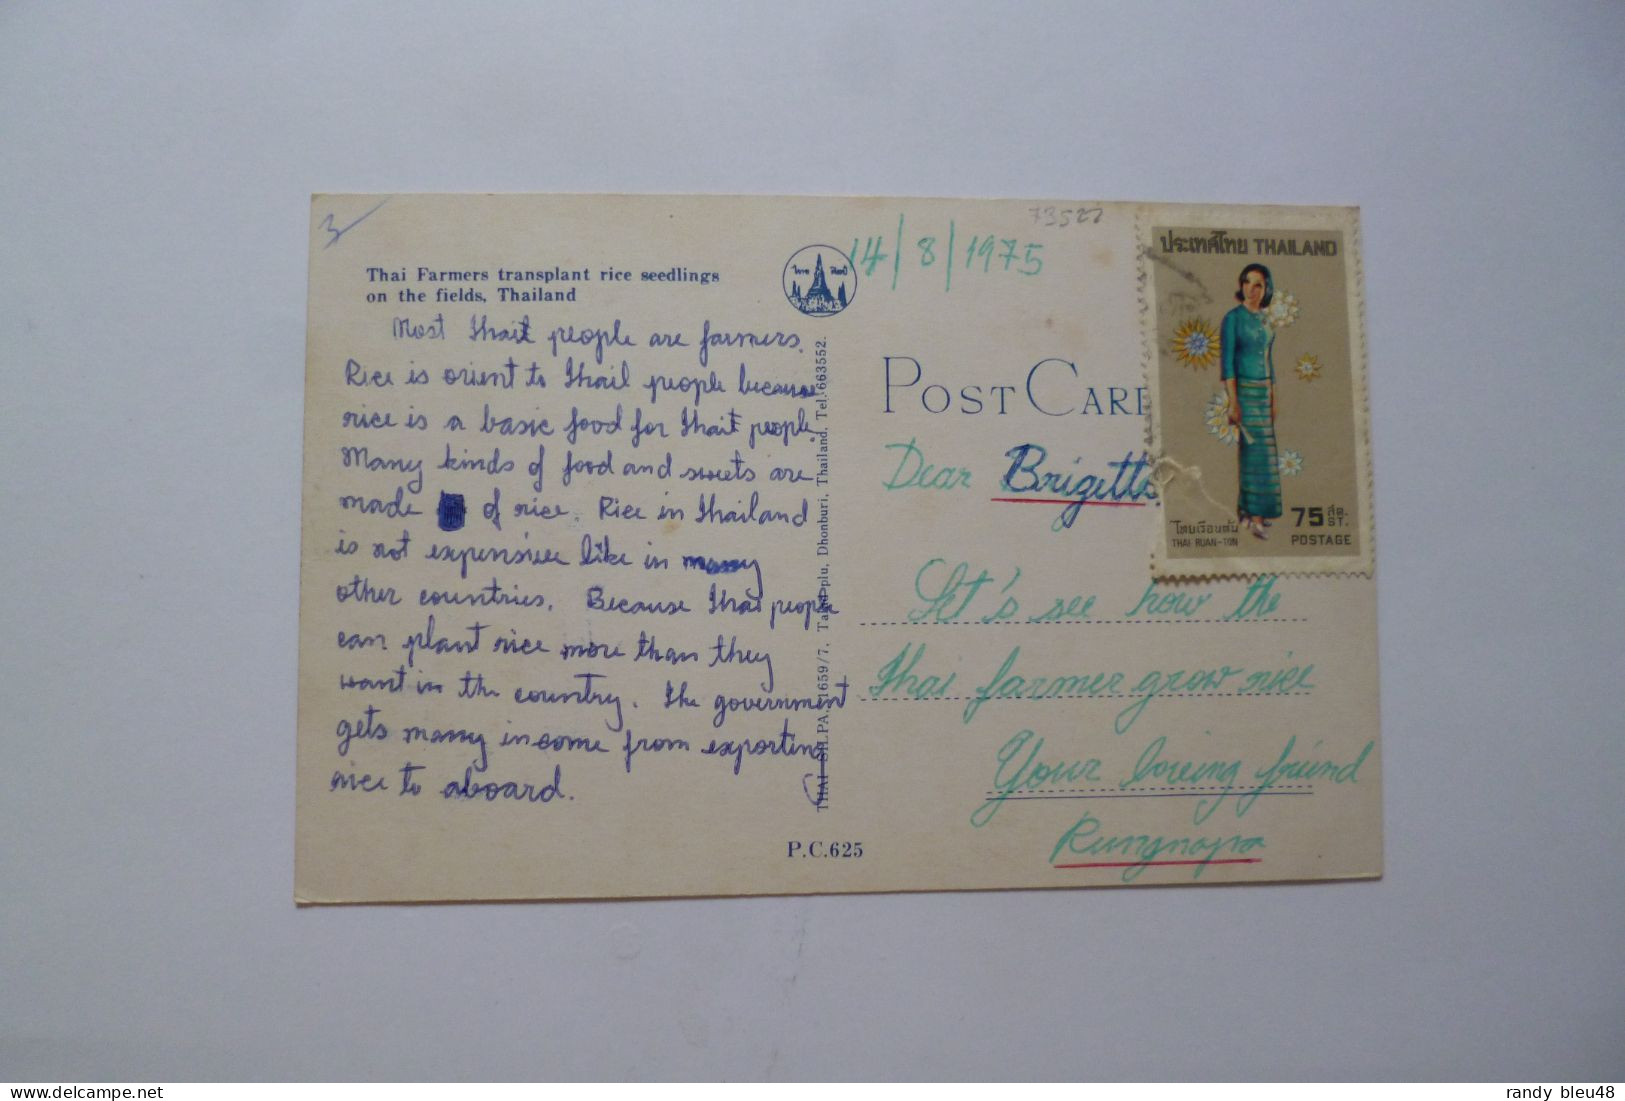 3
73522
14/8/1975
Thai Farmers transplant rice seedlings
on the fields, Thailand
Most Thai people are farmers.
Rice is orient to Thai people because
rice is a basic food for Thai people.
Many kinds of food and sweets are
made of rice. Rice in Thailand
is not expensive like in many
other countries. Because Thai people
can plant rice more than they
want in the country. The government
gets many income from exporting
rice to aboard.
THAI SILPA, 1659/7, Talad-plu, Dhonburi, Thailand. Tel. 663552.
P.C.625
POST CARD
Dear Brigette
Let's see how the
Thai farmer grow rice
Your loveing friend
Rungnapa
ประเทศไทย THAILAND
ไทยเรือนต้น
THAI RUAN-TON
75 สต.
ST.
POSTAGE
randy bleu48